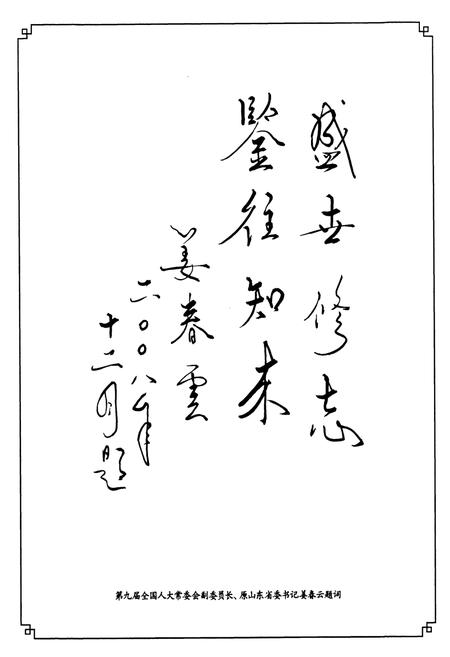 盛世修志
鑒往知未
姜春雲
二〇〇八年
十二月題
第九届全国人大常委会副委员长、原山东省委书记姜春云题词